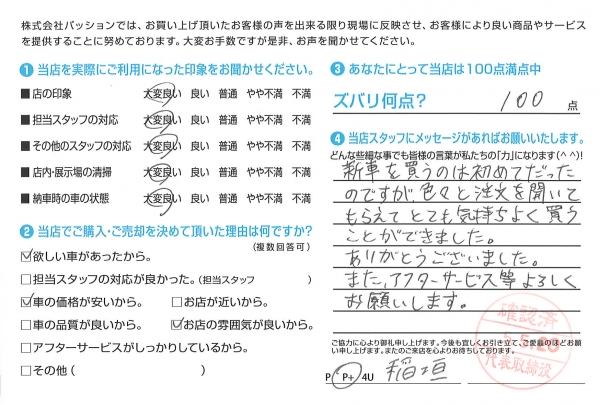 株式会社パッションでは、お買い上げ頂いたお客様の声を出来る限り現場に反映させ、お客様により良い商品やサービス
を提供することに努めております。大変お手数ですが是非、お声を聞かせてください。
❶ 当店を実際にご利用になった印象をお聞かせください。
■ 店の印象 大変良い 良い 普通 やや不満 不満
■ 担当スタッフの対応 大変良い 良い 普通 やや不満 不満
■ その他のスタッフの対応 大変良い 良い 普通 やや不満 不満
■ 店内・展示場の清掃 大変良い 良い 普通 やや不満 不満
■ 納車時の車の状態 大変良い 良い 普通 やや不満 不満
❷ 当店でご購入・ご売却を決めて頂いた理由は何ですか?
(複数回答可)
☑欲しい車があったから。
□担当スタッフの対応が良かった。(担当スタッフ )
☑車の価格が安いから。 □お店が近いから。
□車の品質が良いから。 ☑お店の雰囲気が良いから。
□アフターサービスがしっかりしているから。
□その他( )
❸ あなたにとって当店は100点満点中
ズバリ何点? 100 点
❹ 当店スタッフにメッセージがあればお願いいたします。
どんな些細な事でも皆様の言葉が私たちの「力」になります(^^)!
新車を買うのは初めてだった
のですが、色々と注文を聞いて
もらえてとても気持ちよく買う
ことができました。
ありがとうございました。
また、アフターサービス等よろしく
お願いします。
ご協力に心より御礼申し上げます。今後も宜しくお引き立て、ご愛顧のほどお願
い申し上げます。またのご来店を心よりお待ちしております。
P P+ 4U 稲垣
確認済
代表取締役